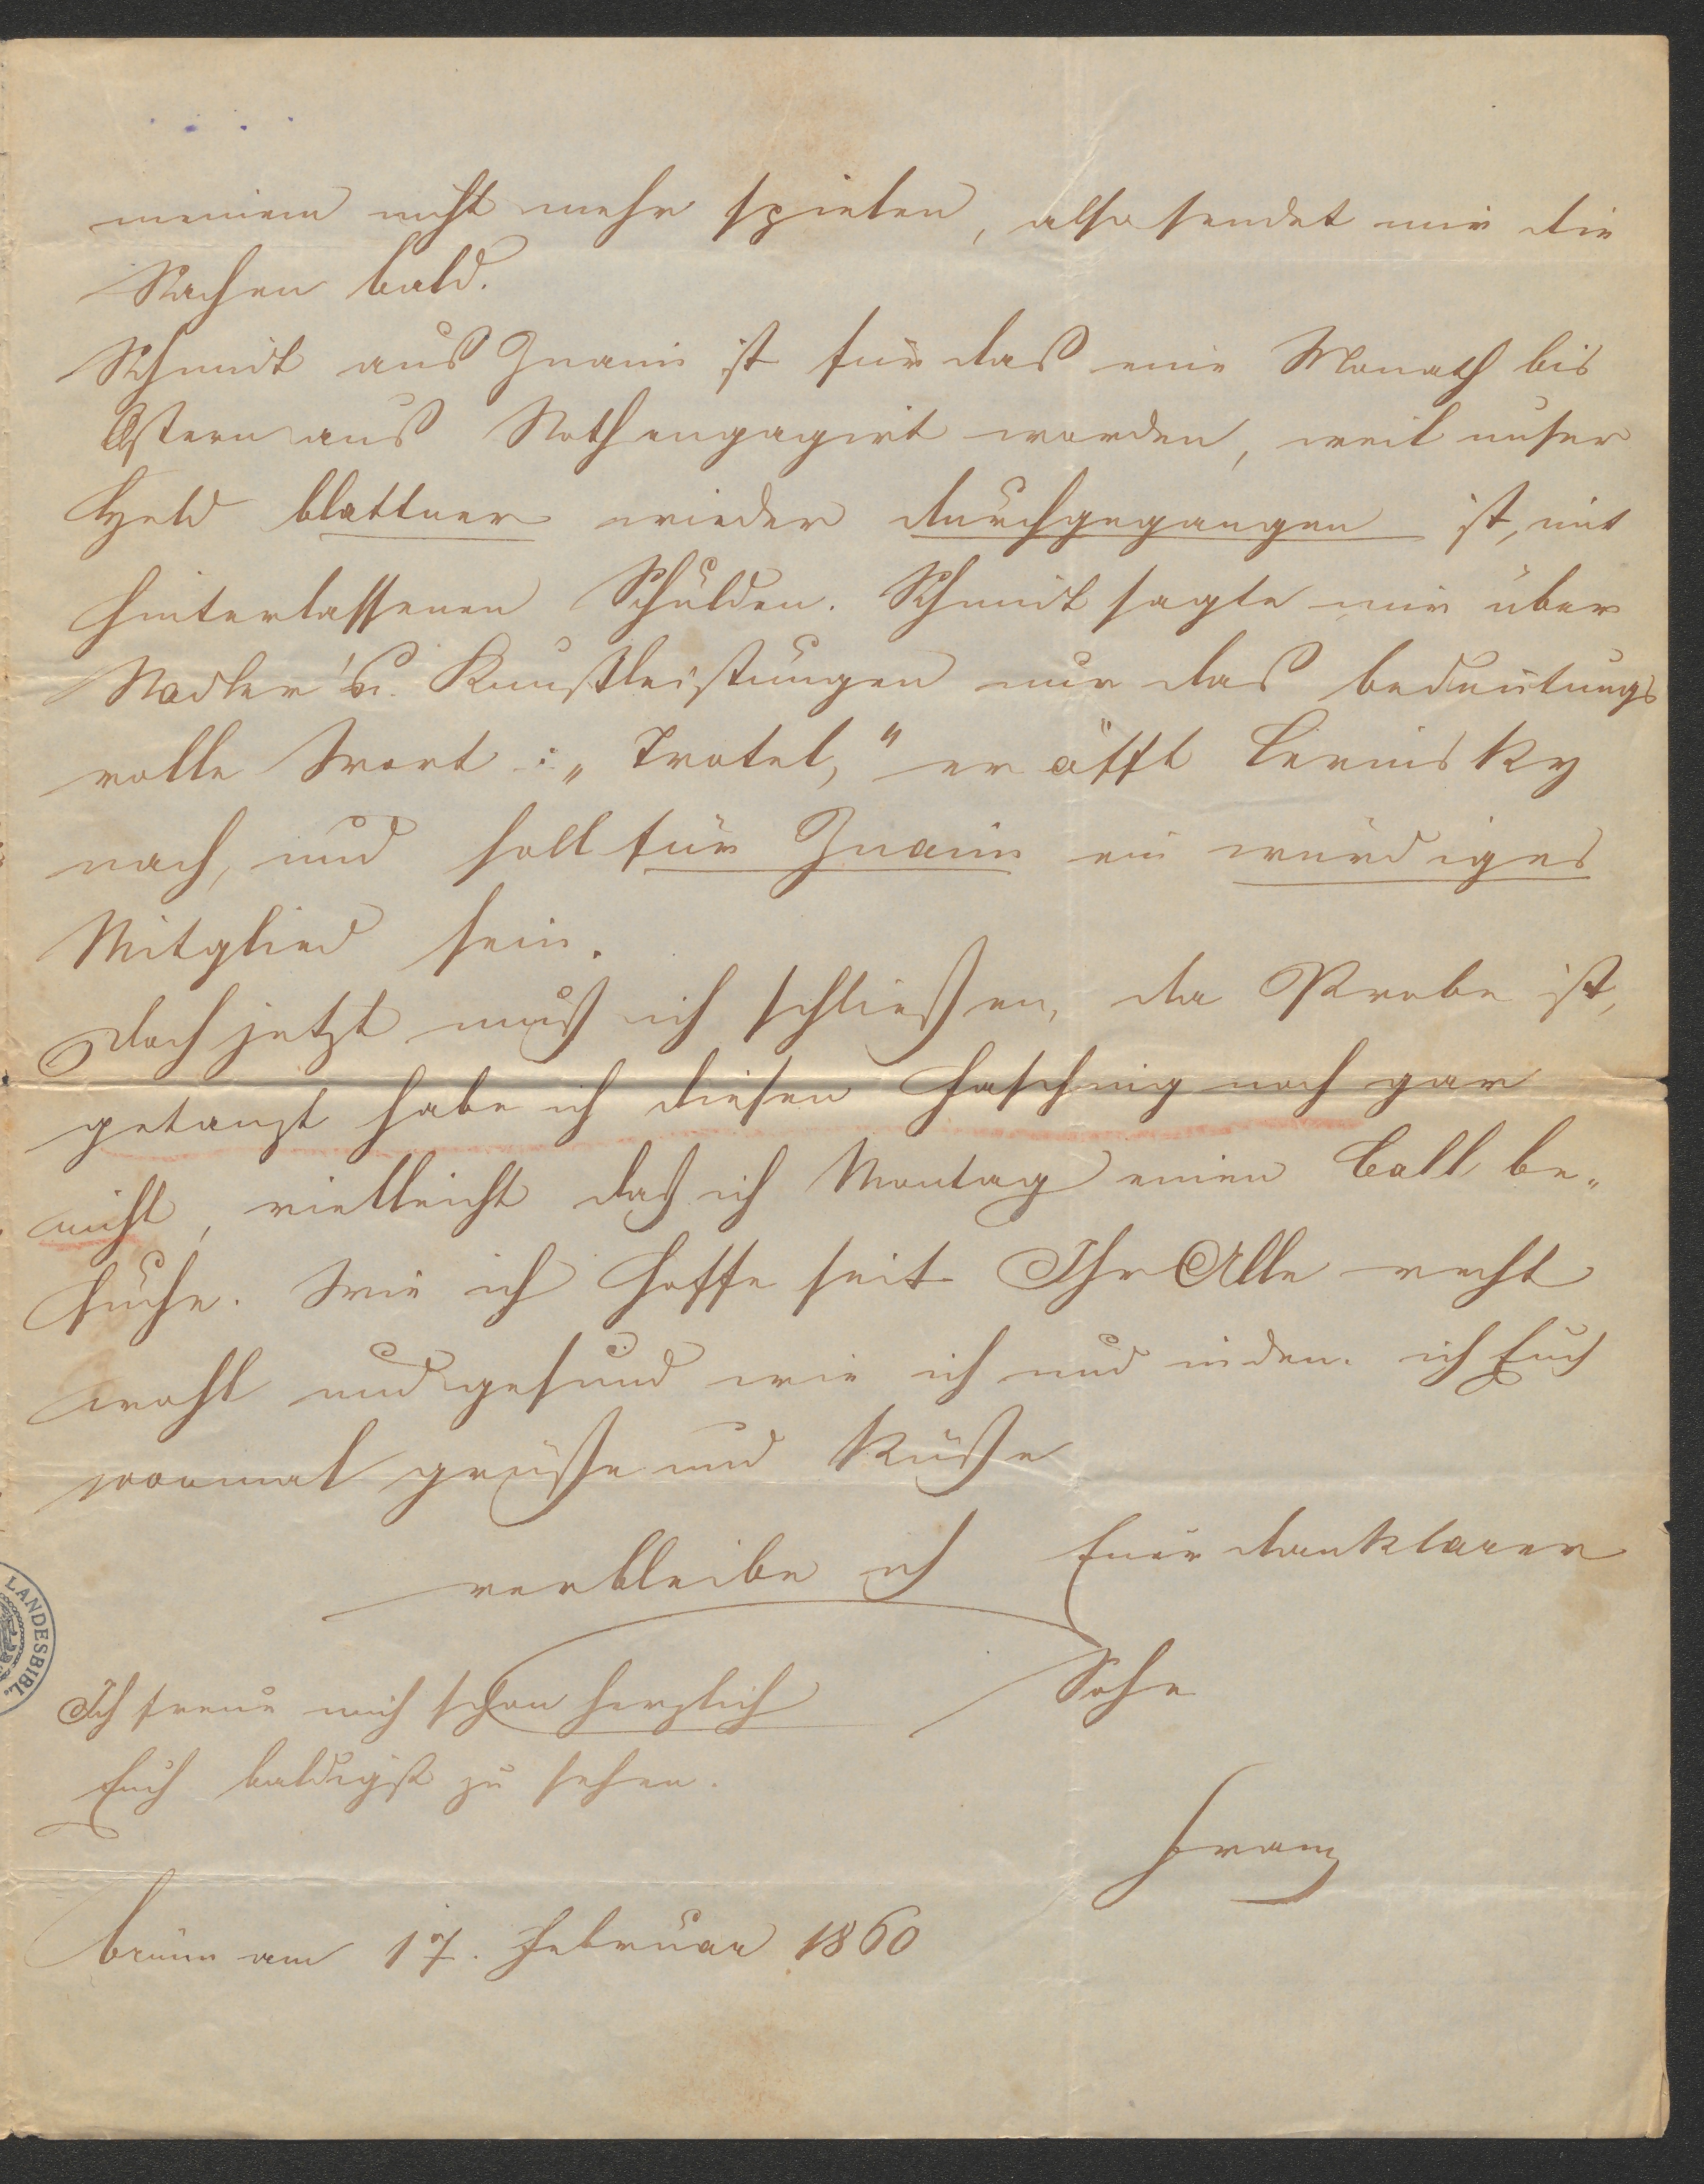 meinem nicht mehr spielen, also sendet mir die
Sachen bald.
Schmidt aus Znaim ist für das eine Monath bis
Ostern aus Noth engagirt worden, weil unser
Held Blattner wieder durchgegangen ist, mit
hinterlassenen Schulden. Schmidt sagte mir über
Nadler's Kunstleistungen nur das bedeutungs
volle Wort: „Trotel," er äfft Levinsky
nach, und soll für Znaim ein würdiges
Mitglied sein.
Doch jetzt muß ich schließen, da Probe ist,
getanzt habe ich diesen Fasching noch gar
nicht, vielleicht daß ich Montag einen Ball be-
suche. Wie ich hoffe seit Ihr Alle recht
wohl und gesund wie ich und indem ich Euch
1000mal grüße und küße
verbleibe ich Euer dankbarer
Sohn
Ich freue mich schon herzlich
Euch baldigst zu sehen.
Franz
Brünn am 17. Februar 1860
LANDESBIBL.